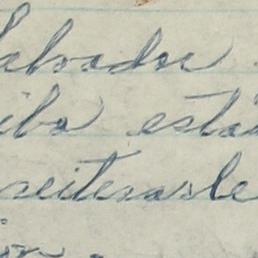 Salvador
iba está
reiterarle
ón